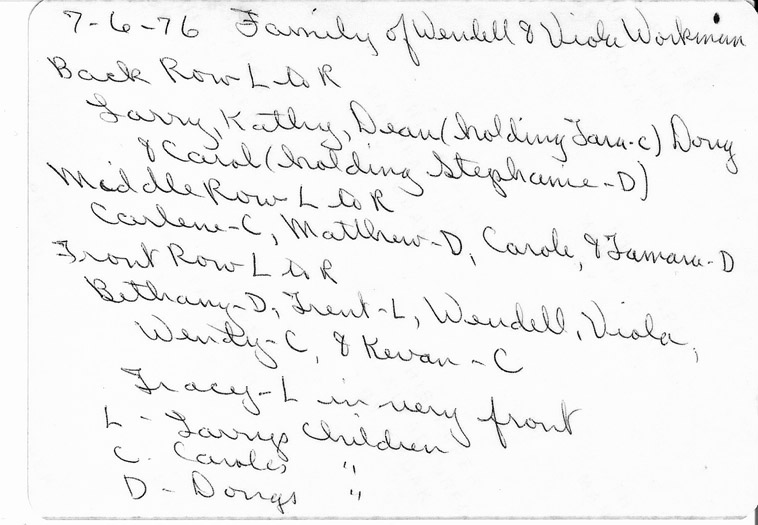 7-6-76 Family of Wendell & Viola Workman
Back Row L to R
Larry, Kathy, Dean (holding Tara-C) Doug
& Carol (holding Stephanie-D)
Middle Row L to R
Carlene-C, Matthew-D, Carole, & Tamara-D
Front Row L to R
Bethany-D, Trent-L, Wendell, Viola,
Wendy-C, & Kevan-C
Tracy-L in very front
L - Larrys Children
C. Caroles "
D - Dougs "